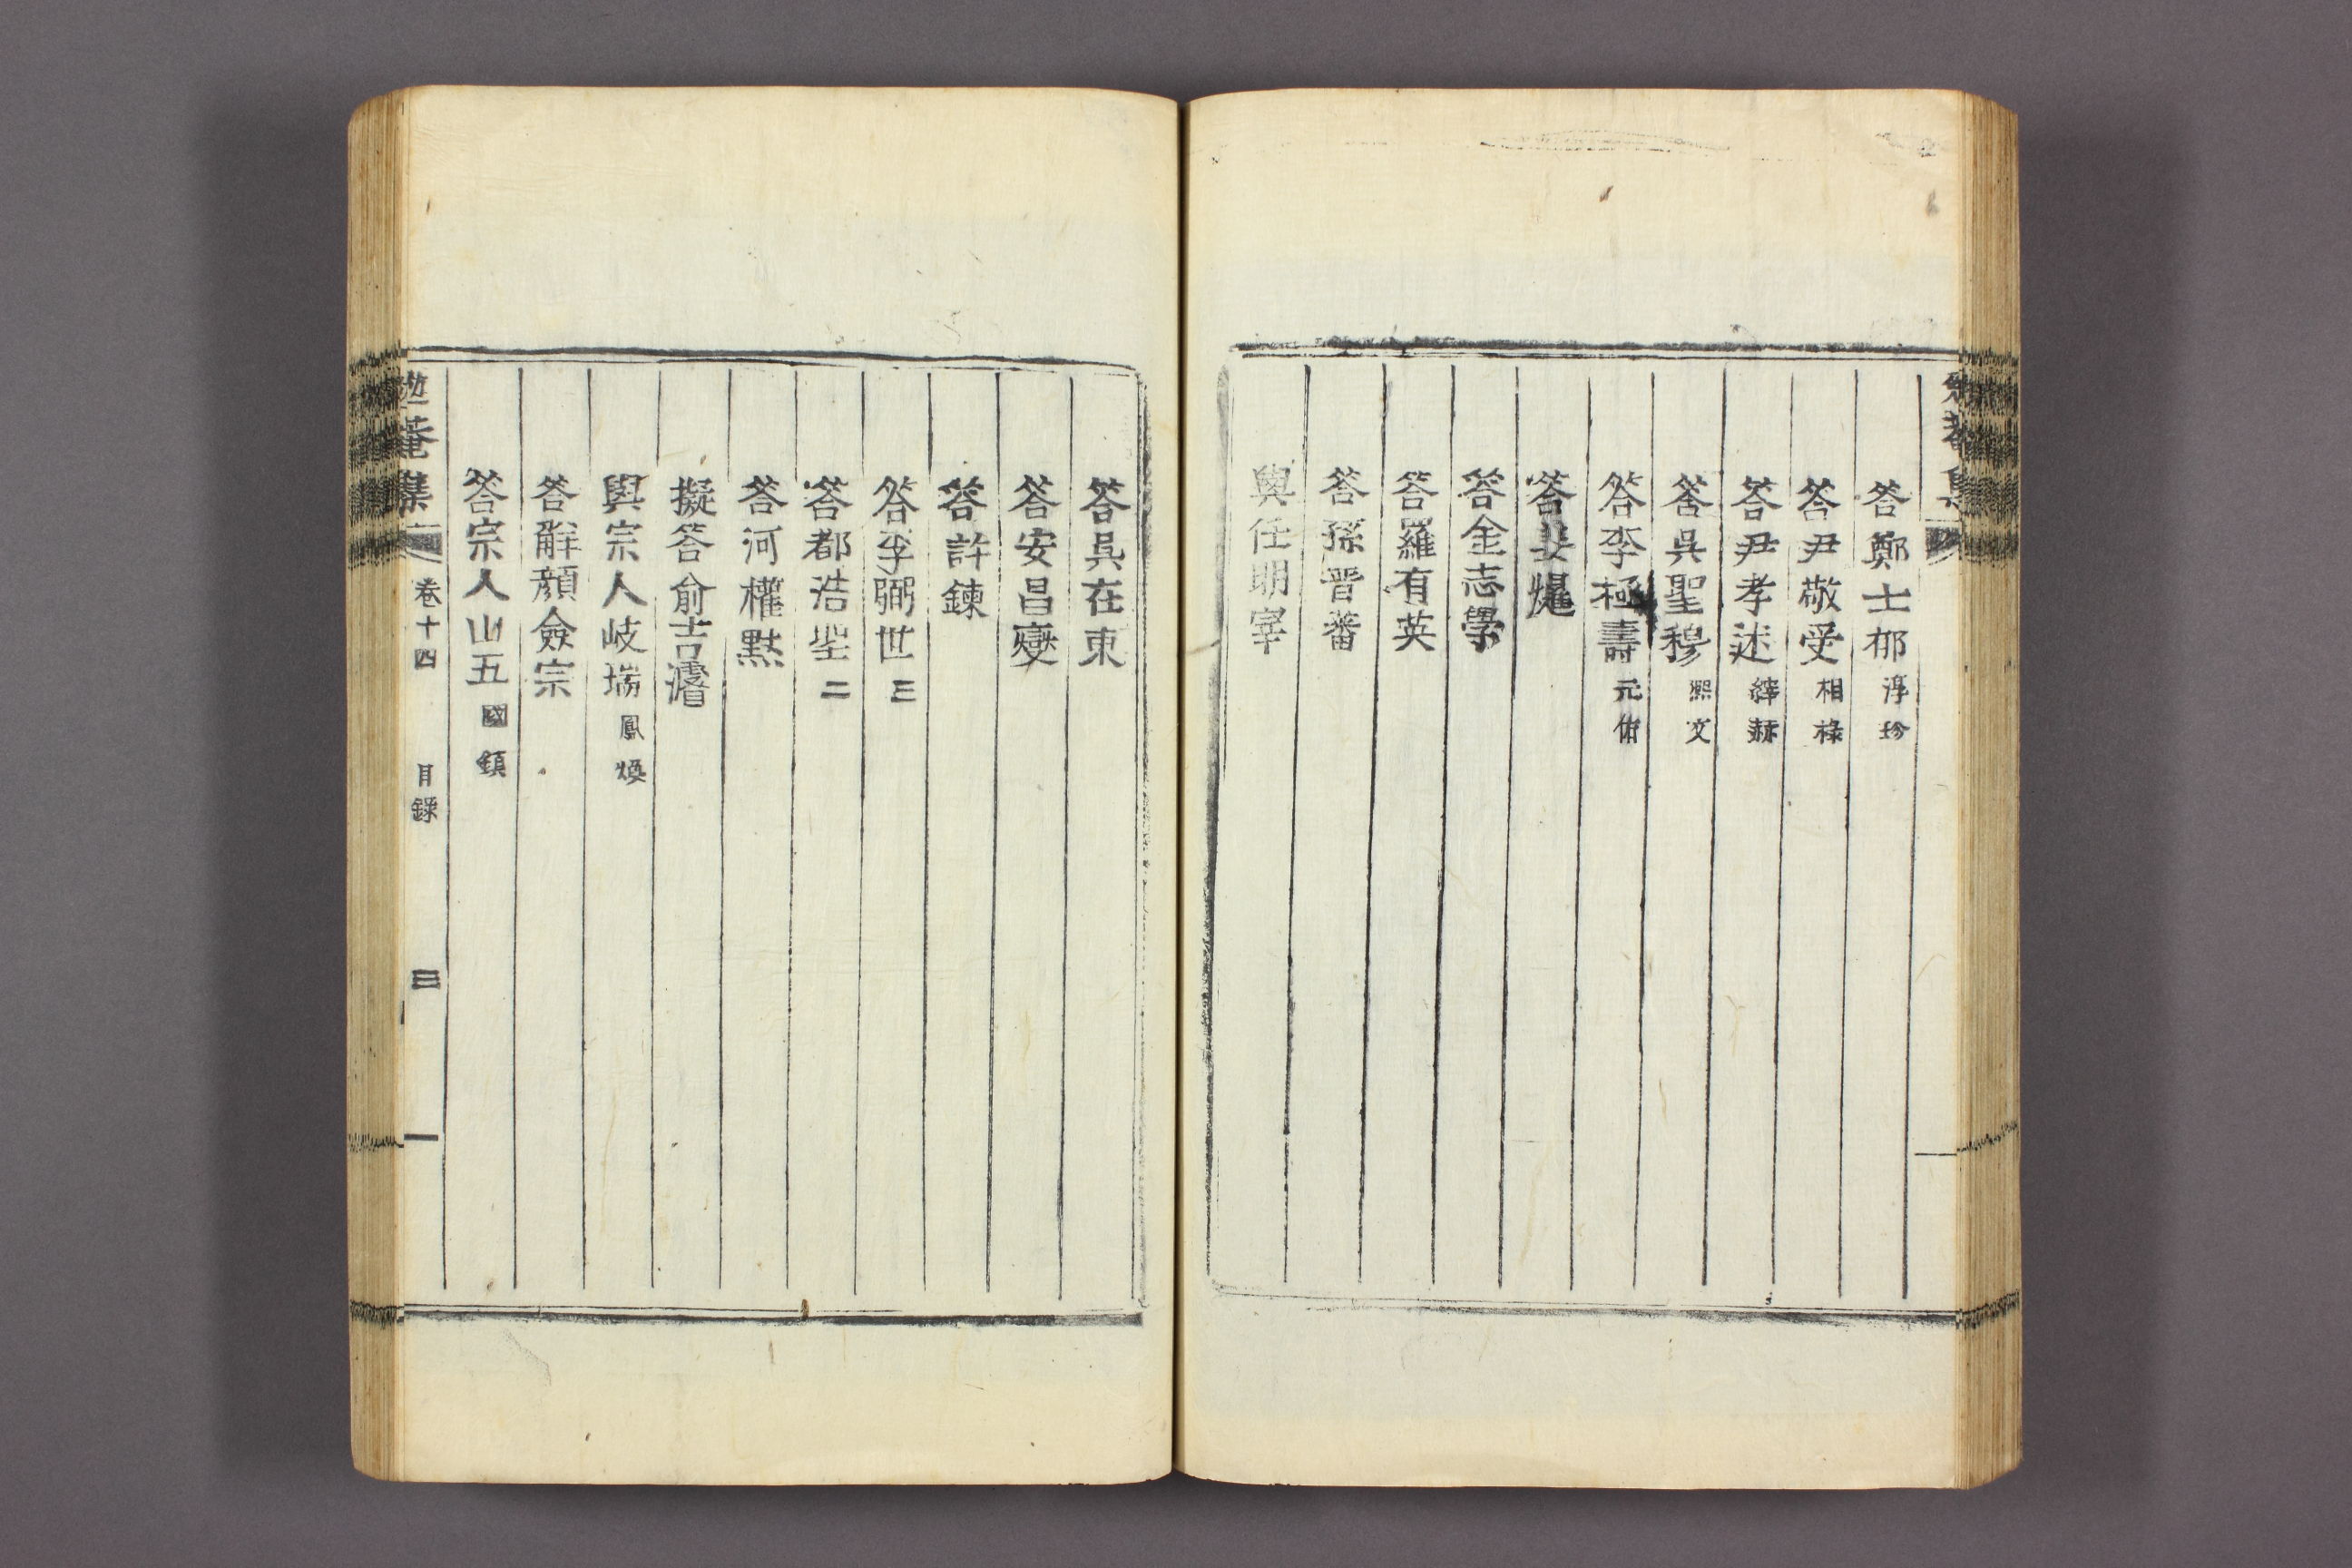 答鄭士郁 淳珍
答尹敬受 相祿
答尹孝述 緯赫
答吳聖穆 熙文
答李極壽 元佑
答姜爔
答金志學
答羅有英
答孫晋蕃
與任明宰
答吳在東
答安昌燮
答許鍊
答李弼世 三
答都浩堅 二
答河權黙
擬答俞吉濬
與宗人岐瑞 鳳煥
答觧顔僉宗
答宗人山五 國鎮
勉菴集 卷十四 目錄 三